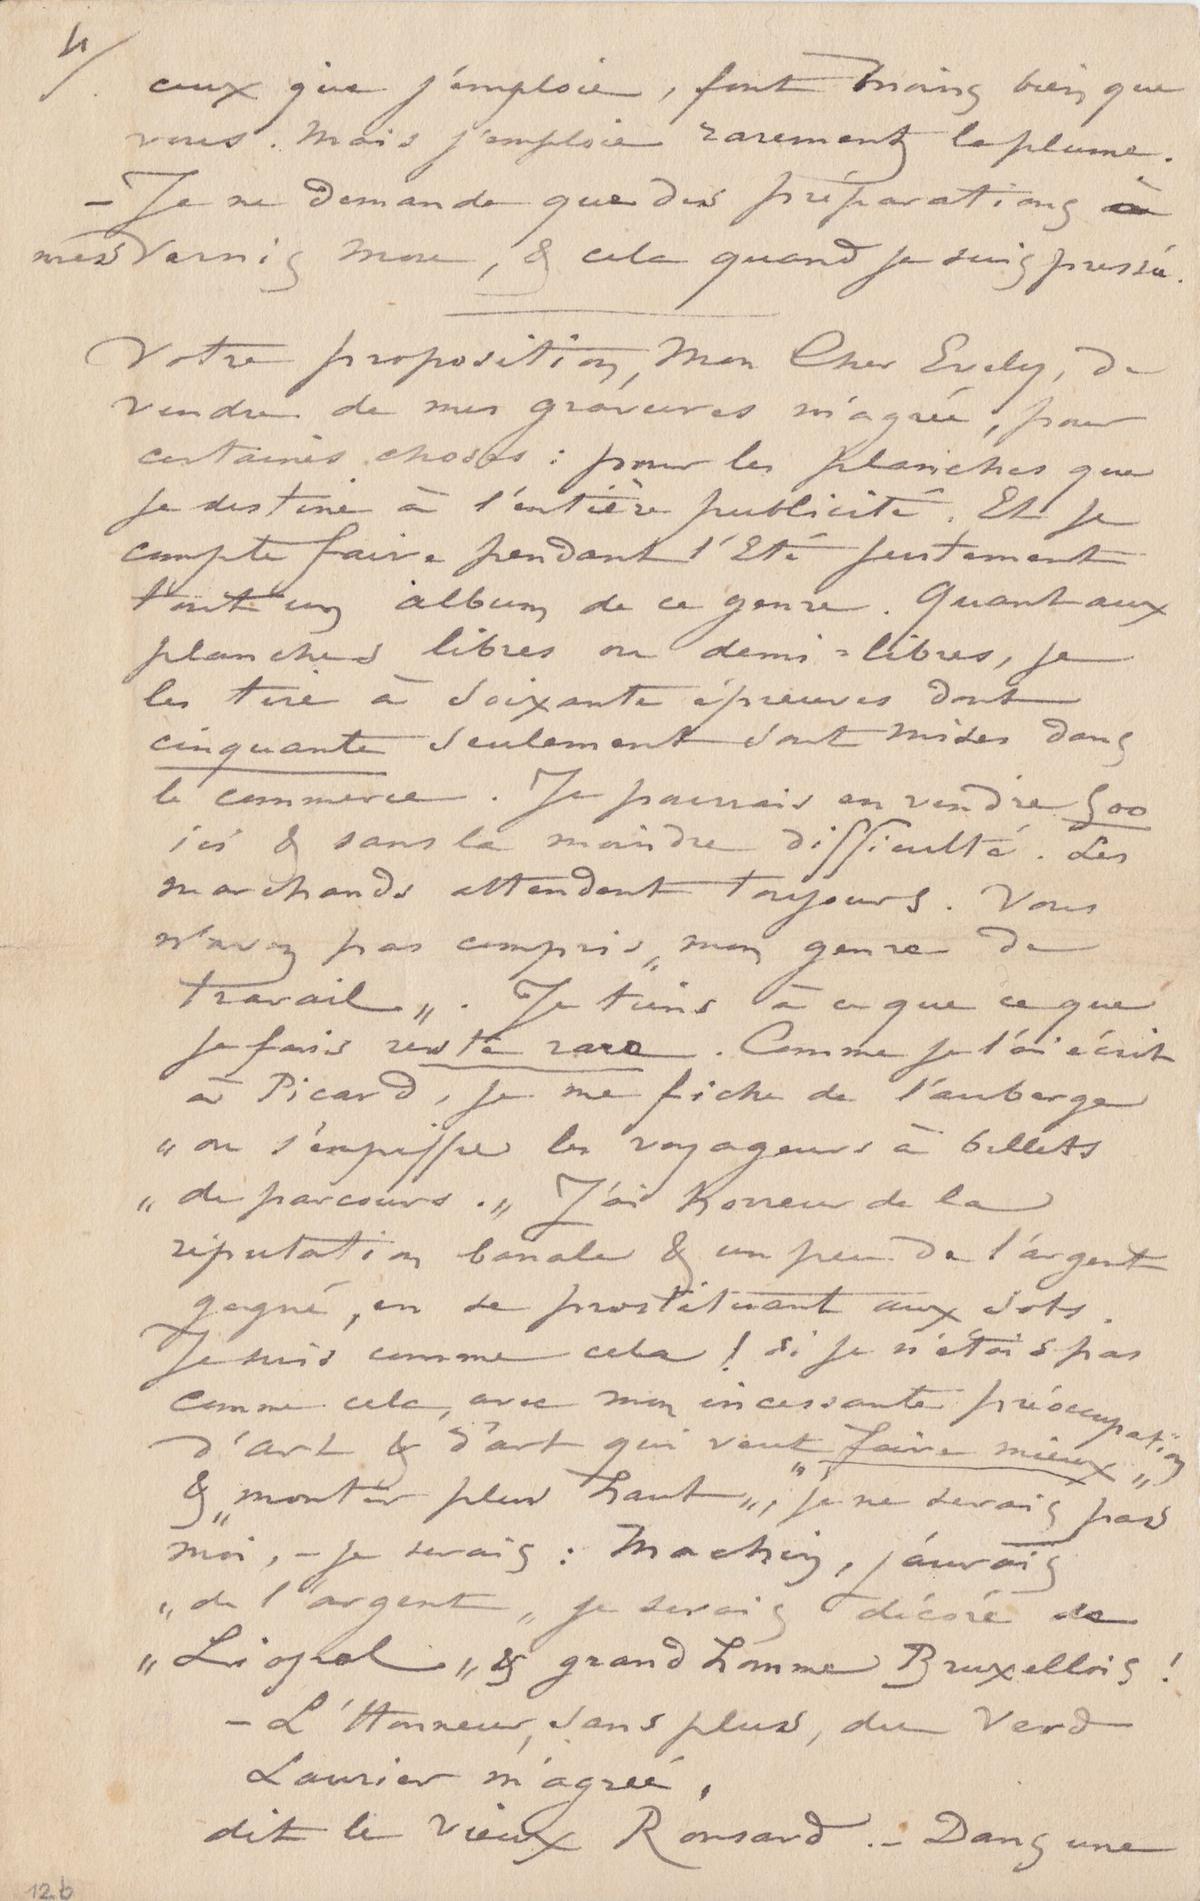 4/
ceux que j'emploie, font moins bien que
vous. Mais j'emploie rarement la plume.
– Je ne demande que des préparations à
mes Vernis mou, & cela quand je suis pressé.
Votre proposition, Mon Cher Evely, de
vendre de mes gravures m'agrée, pour
certaines choses : pour les planches que
je destine à l'entière publicité. Et je
compte faire pendant l'Eté justement
tout un album de ce genre. Quant aux
planches libres ou demi-libres, je
les tire à soixante épreuves dont
cinquante seulement sont mises dans
le commerce. Je pourrais en vendre 500
ici & sans la moindre difficulté. Les
marchands attendent toujours. Vous
n'avez pas compris „mon genre de
travail„. Je tiens à ce que ce que
je fais reste rare. Comme je l'ai écrit
à Picard, je me fiche de l'auberge
„ où s'empiffre les voyageurs à billets
„ de parcours.„ J'ai horreur de la
réputation banale & un peu de l'argent
gagné, en se prostituant aux sots.
Je suis comme cela ! Si je n'étais pas
comme cela, avec mon incessante préoccupation
d'art & d'art qui veut „faire mieux„
& „monter plus haut„, je ne serais pas
moi, – je serais : Machin, j'aurais
„ de l'argent„ je serais décoré de
„ Liopol „ & grand homme Bruxellois !
– L'Honneur, sans plus, du Verd
Laurier m'agrée,
dit le vieux Ronsard. – Dans une
12b